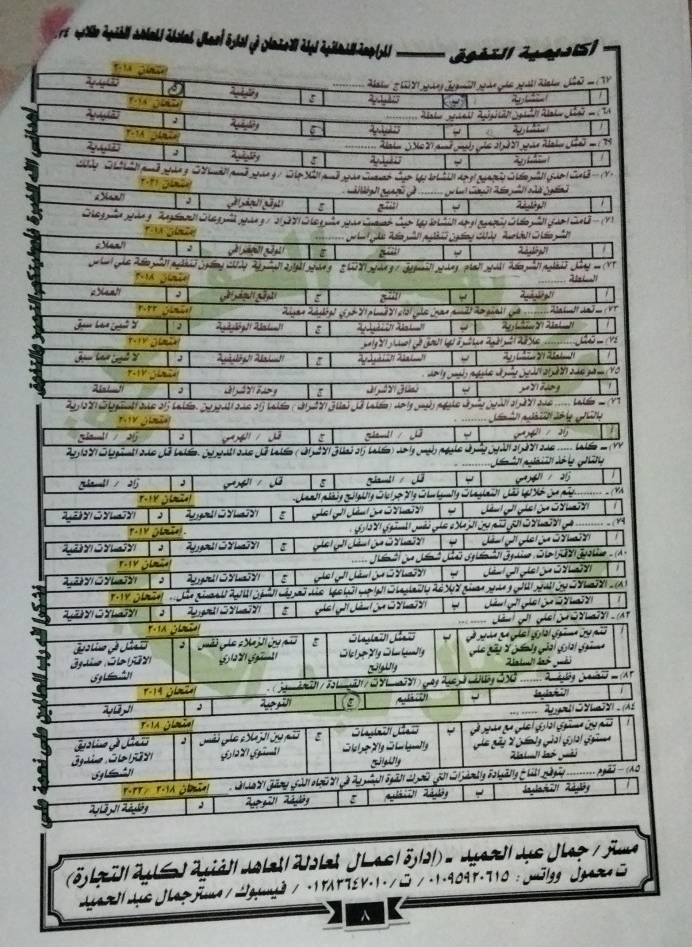 أكاديمية التفوق ـــــ المراجعة النهائية ليلة الامتحان في ادارة أعمال لمعادلة المعاهد الفنية طلاب ٢٤
٦٧)- تمثل سلطة المدير علي مدير التسويق ومدير الانتاج سلطة ........ امتحان ٢٠١٨
أ استشارية ب تنفيذية ج وظيفية د تقليدية
٦٨)- تمثل سلطة الشئون القانونية للمدير سلطة ........ امتحان ٢٠١٨
أ استشارية ب تنفيذية ج وظيفية د تقليدية
٦٩)- تمثل سلطة مدير الافراد علي رئيس قسم الاعلان سلطة ........ امتحان ٢٠١٨
أ استشارية ب تنفيذية ج وظيفية د تقليدية
٧٠)- قامت احدي الشركات بتجميع اوجه النشاط بها حيث خصصت مدير قسم الثلاجات / و مدير قسم الغسالات و مدير قسم الشاشات بذلك
تكون هذه الشركة اتبعت اساس ........ في تجميع الوظائف. امتحان ٢٠٢١
أ الوظيفة ب المنتج ج الموقع الجغرافي د العملاء
٧١)- قامت احدي الشركات بتجميع اوجه النشاط بها حيث خصصت مدير مشروعات الافراد / و مدير لمشروعات الحكومة و مدير مشروعات
الشركات الخاصة بذلك يكون تنظيم الشركة علي اساس ........ امتحان ٢٠١٨
أ الوظيفة ب المنتج ج الموقع الجغرافي د العملاء
٧٢)- يمثل تنظيم الشركة المدير العام ومدير التسويق / و مدير الانتاج و مدير الموارد البشرية بذلك يكون تنظيم الشركة علي اساس
السلطة ........ امتحان ٢٠١٨
أ الوظيفية ب المنتج ج الموقع الجغرافي د العملاء
٧٣)- تعد السلطة ........ هي الممنوحة لقسم معين علي اداء الاقسام الاخري لوظيفة معينة امتحان ٢٠٢٢
أ السلطة الاستشارية ب السلطة التنفيذية ج السلطة الوظيفية د لا شيئ مما سبق
٧٤)- تمثل........ علاقة اشرافية مباشرة لها الحق في اصدار الاوامر امتحان ٢٠١٧
أ السلطة الاستشارية ب السلطة التنفيذية ج السلطة الوظيفية د لا شيئ مما سبق
٧٥)- هو عدد الافراد الذين يشرف عليهم رئيس واحد. امتحان ٢٠١٧
أ وحدة الامر ب نطاق الاشراف ج وحدة الاشراف د السلطة
٧٦)- كلما ..... عدد الافراد الذين يشرف عليهم رئيس واحد (كلما قل نطاق الاشراف) كلما زاد عدد المديرين .كلما زاد عدد المستويات الادارية
بالتالي يأخذ التنظيم الشكل........ امتحان ٢٠١٧
أ زاد / الهرمي ب قل / المسطح ج قل / الهرمي د زاد / المسطح
٧٧)- كلما ..... عدد الافراد الذين يشرف عليهم رئيس واحد (كلما زاد نطاق الاشراف) كلما قل عدد المديرين .كلما قل عدد المستويات الادارية
بالتالي يأخذ التنظيم الشكل........
أ زاد / الهرمي ب قل / المسطح ج قل / الهرمي د زاد / المسطح
٧٨)- ........يتم من خلالها نقل التعليمات والسياسات والاجراءات واللوائح ونظم العمل. امتحان ٢٠١٧
أ الاتصالات من اعلي الي اسفل ب الاتصالات من اسفل الي اعلي ج الاتصالات المحورية د الاتصالات الافقية
٧٩)- ........ هي الاتصالات التي تتم بين الزملاء علي نفس المستوي الاداري. امتحان ٢٠١٧
أ الاتصالات من اعلي الي اسفل ب الاتصالات من اسفل الي اعلي ج الاتصالات المحورية د الاتصالات الافقية
٨٠)- صناديق الاقتراحات، صندوق الشكاوي تمثل شكل من اشكال ..... امتحان ٢٠١٧
أ الاتصالات من اعلي الي اسفل ب الاتصالات من اسفل الي اعلي ج الاتصالات المحورية د الاتصالات الافقية
٨١)- الاتصالات بين المدير المالي و مدير مصنع لابلاغة بالتعليمات الواجب اتباعها عند تعريف الشؤن المالية للمصنع مثل.. امتحان ٢٠١٧
أ الاتصالات من اعلي الي اسفل ب الاتصالات من اسفل الي اعلي ج الاتصالات المحورية د الاتصالات الافقية
٨٢)- الاتصالات من اعلي الي اسفل ........ امتحان ٢٠١٨
أ تتم بين مستوي اداري أعلي مع مدير في مستوي اداري أدني ولكن لا يقع علي نفس خط السلطة ب تتمثل التعليمات والسياسات والاجراءات واللوائح ج تتم بين الزملاء علي نفس المستوي الاداري د تتمثل في صناديق الاقتراحات، صندوق الشكاوي
٨٣)- تتضمن وظيفة ........ ثلاث وظائف فرعية وهي (الاتصالات / القيادة / التحفيز). امتحان ٢٠١٩
أ التخطيط ب التنظيم ج التوجية د الرقابة
٨٤)- الاتصالات المحورية ........ امتحان ٢٠١٨
أ تتم بين مستوي اداري أعلي مع مدير في مستوي اداري أدني ولكن لا يقع علي نفس خط السلطة ب تتمثل التعليمات والسياسات والاجراءات واللوائح ج تتم بين الزملاء علي نفس المستوي الاداري د تتمثل في صناديق الاقتراحات، صندوق الشكاوي
٨٥)- تقوم ........ بتوفير المناخ والقيادة والمحفزات التي تحرك القوة البشرية في الاتجاه الذي يحقق الاهداف. امتحان ٢٠١٨ / ٢٠٢٢
أ وظيفة التخطيط ب وظيفة التنظيم ج وظيفة التوجية د وظيفة الرقابة
مستر / جمال عبد الحميد - (إدارة اعمال لمعادلة المعاهد الفنية لكلية التجارة)
ت محمول وواتس : ٠١٠٩٥٩٢٠٦١٥ / ت/ ٠١٢٨٣٦٤٧٠١٠ / فيسبوك / مستر جمال عبد الحميد
٨